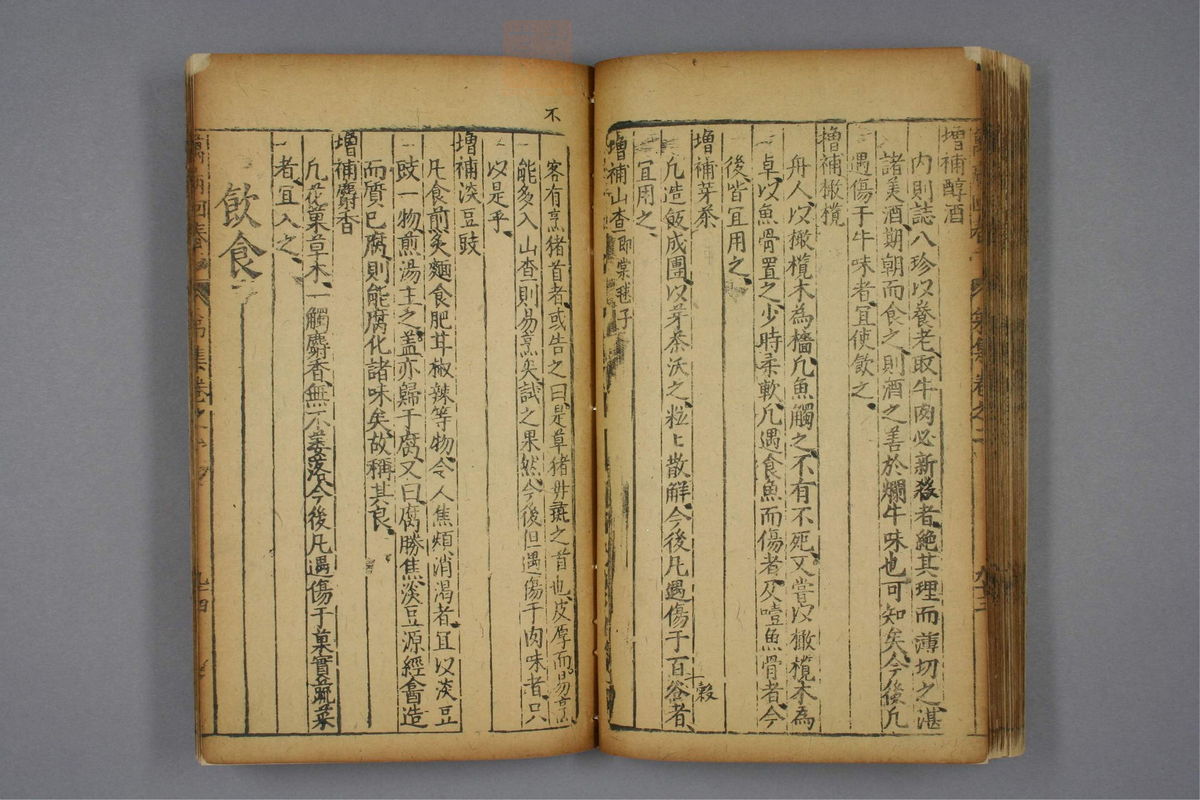 增補醇酒
內則誌八珍以養老取牛肉必新殺者絶其理而薄切之湛
諸美酒期朝而食之則酒之善於爛牛味也可知矣今後凡
遇傷于牛味者宜使飲之
增補橄欖
舟人以橄欖木為檣凡魚觸之不有不死又嘗以橄欖木為
卓以魚骨置之少時柔軟凡遇食魚而傷者及噎魚骨者今
後皆宜用之
增補芽茶
凡造飯成團以芽茶沃之粒上散解今後凡遇傷于百谷者
穀
宜用之
增補山查即棠毬子
不
客有烹猪首者或告之曰是草猪毋豝之首也皮厚而易烹
能多入山查則易烹矣試之果然今後但遇傷于肉味者只
以是乎
增補淡豆豉
凡食煎炙麵食肥茸椒辣等物令人焦煩消渴者宜以淡豆
豉一物煎湯主之盖亦歸于腐又曰腐勝焦淡豆源經會造
而質已腐則能腐化諸味矣故稱其良
增補麝香
凡花菓草木一觸麝香無不萎落今後凡遇傷于菓實蔬菜
者宜入之
飲食